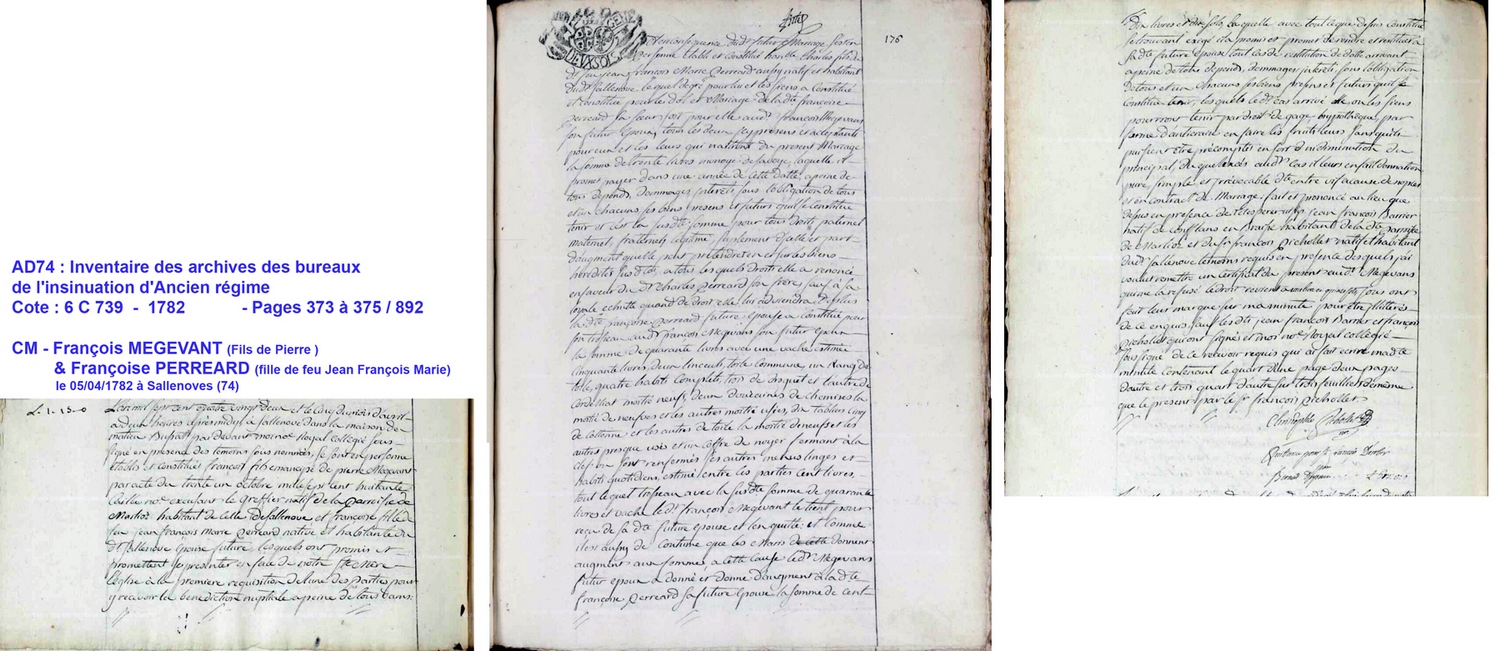 AD74 : Inventaire des archives des bureaux
de l'insinuation d'Ancien régime
Cote : 6 C 739 - 1782 - Pages 373 à 375 / 892
CM - François MEGEVANT (Fils de Pierre )
& Françoise PERREARD (fille de feu Jean François Marie)
le 05/04/1782 à Sallenoves (74)
L. 1-13-0
L'an mil sept cent quatre vingt deux et le cinq du mois d'avril
a deux heures après midy a sallenove dans la maison de
maitre par devant moi no.re Royal collégié sous
signé en presence des temoins sous nommés se sont en personne
établis et constitués francois fils emancipé de pierre Megevant
par acte du trente un octobre mil sept cent huitante
no.re excusant le greffier natif de la Parroisse de
Marlioz habitant de celle de sallenove et francoise fille de
feu jean francois Marie perreard native et habitante du
d.t Sallenove epouse future, lesquels ont promis et
promettent se presenter en face de notre S.te Mere
L'église à la premiere requisition de l'une des parties pour
y recevoir la benediction nuptiale a peine de tous dams.
DEUX SOLS
176
En consequence dud.t futur Mariage s'est en
personne établi et constitué hon.ble Charles fils de
d.t feu jean françois Marie perreard aussy natif et habitant
dud.t Sallenove lequel de gré pour lui et les siens a constitué
et constitue pour le dot et Mariage de la d.te francoise
perreard sa sœur soit pour elle aud.t francois Megevans
son futur epoux, tous les deux icy presens et acceptants
pour eux et les leurs qui naitront du present Mariage
la somme de trente livres monoye de savoye, laquelle il
promet payer dans une année de cette datte, a peine de
tous depends, dommages interets sous l'obligation de tous
et un chacuns ses biens presens et futurs qu'il se constitue
tenir et c'est la susd.te somme pour tous droits paternel
maternel, fraternels legitime, suplement d'icelle et part
d'augment quelle peut pretendre en et sur les biens
heredités susdites, a tous lesquels droits elle a renoncé
en faveur du d.t Charles perreard son frere sauf a sa
loyale echutte quand de droit elle lui adviendra de plus
la d.te françoise perreard future epouse a constitué pour
son trosseau aud.t francois Megevans son futur epoux
la somme de quarante livres avec une vache estimée
cinquante livres, deux linceuls, toile commune, un
toile, quatre habits complets, l'un de droguet et l'autre de
cordelliat moitié neufs, deux douzaines de chemises la
moitié de neufves et les autres moitié usées, dix tabliers cinq
de cottonne et les autres de toile la moitié de neufs et les
autres presque usés et un coffre de noyer fermant à la
clef ou sont renfermés les autres menus linges et
habits quotidiens, estimé entre les parties cent livres,
tout lequel trosseau avec la susd.te somme de quarante
livres et vache le d.t françois Megevant le tient pour
reçu de sa d.te future epouse et l'en quitte; et comme
il est aussy de coutume que les Maris de cette donnent
augment aux femmes, a cette cause led.t Megevans
futur epoux a donné et donne d'augment à la d.te
françoise perreard sa future epouse la somme de cent
Dix livres et dix sols, laquelle avec tout ce que dessus constitué
se trouvant chargé il a promis et promet de rendre et restituer a
sa d.te future epouse tout cas de restitution de dotte arrivant
a peine de tous depends, dommages interets, sous l'obligation
de tous et un chacuns ses biens presens et futurs qu'il se
constitue tenir, lesquels le d.t cas arrivé elle ou les siens
pourront tenir par droit de gage et hypotheque, par
forme d'antichrese en faire les fruits leurs sans qu'ils
puissent être précomptés en sort n'y diminution du
principal, du quel aud.t cas il leurs en fait donnation
pure simple et irrévocable d.te entre vif a cause de nopces
et en contract de Mariage fait et prononcé au lieu que
dessus en presence de jean francois Barrier
natif de conflans en habitant de la d.te parroisse
de Marlioz et du S.r francois Prehollet natif et habitant
dud.t Sallenove temoins requis en presence desquels j'ai
voulu remettre un certificat du present aud.t Megevans
qui me l'a refusé
fait leur marque sur ma minute pour être illitérés
de ce enquis sauf les d.ts jean francois Barrier et francois
Prehollet qui ont signés et moi no.re Royal collégié
soussigné de ce recevoir requis qui ai fait ecrire mad.te
minute contenant le quart d'une page deux pages
d'autre et trois quart d'autre sur trois feuillets de meme
que le present par le S.r francois Prehollet
Christophle